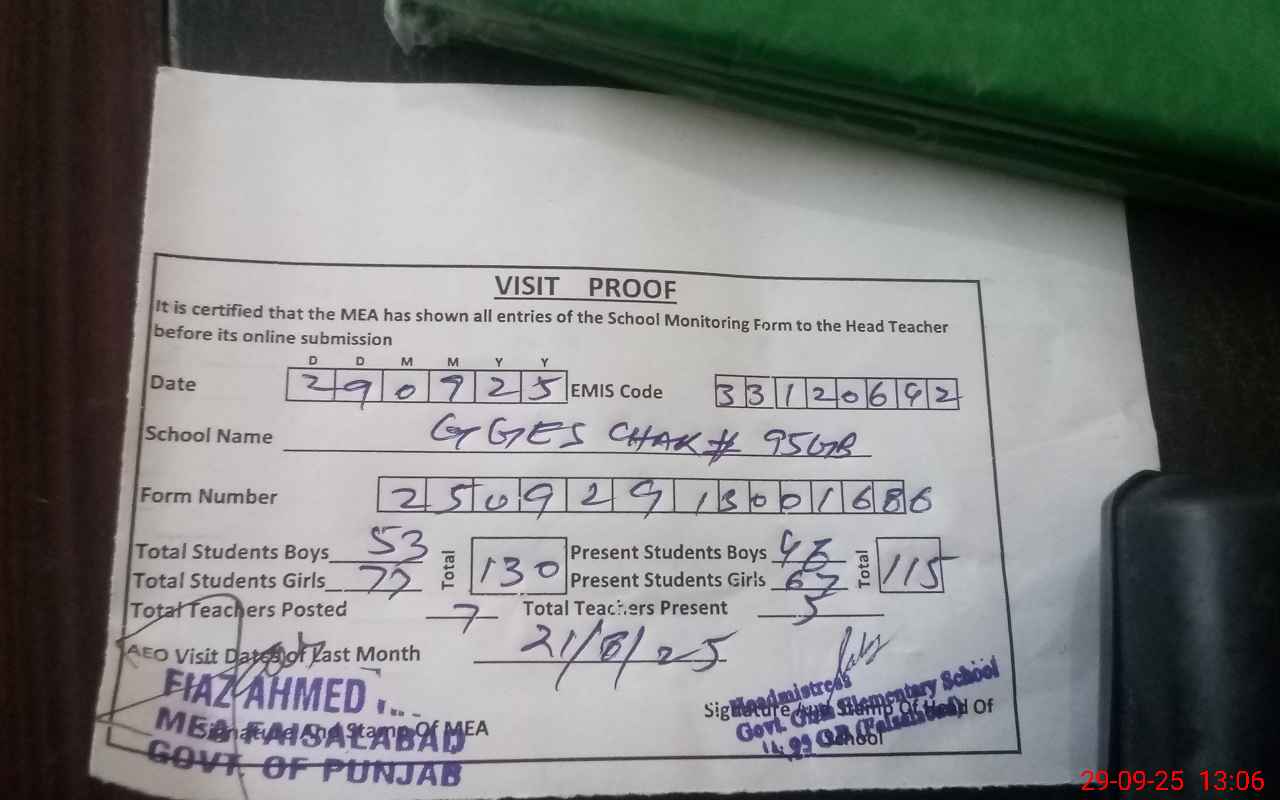 VISIT PROOF
It is certified that the MEA has shown all entries of the School Monitoring Form to the Head Teacher
before its online submission
D D M M Y Y
Date 2 9 0 9 2 5 EMIS Code 3 3 1 2 0 6 4 2
School Name GGES CHAK # 95GB
Form Number 2 5 0 9 2 9 1 3 0 0 1 6 8 6
Total Students Boys 53 Total 130 Present Students Boys 48 Total 115
Total Students Girls 77 Present Students Girls 67
Total Teachers Posted 7 Total Teachers Present 5
AEO Visit Dates of Last Month 21/8/25
FIAZ AHMED
Signature And Stamp Of MEA
MEA FAISALABAD
GOVT. OF PUNJAB
Headmistress
Signature And Stamp Of Head Of
School
Govt. Girls Elementary School
29-09-25 13:06